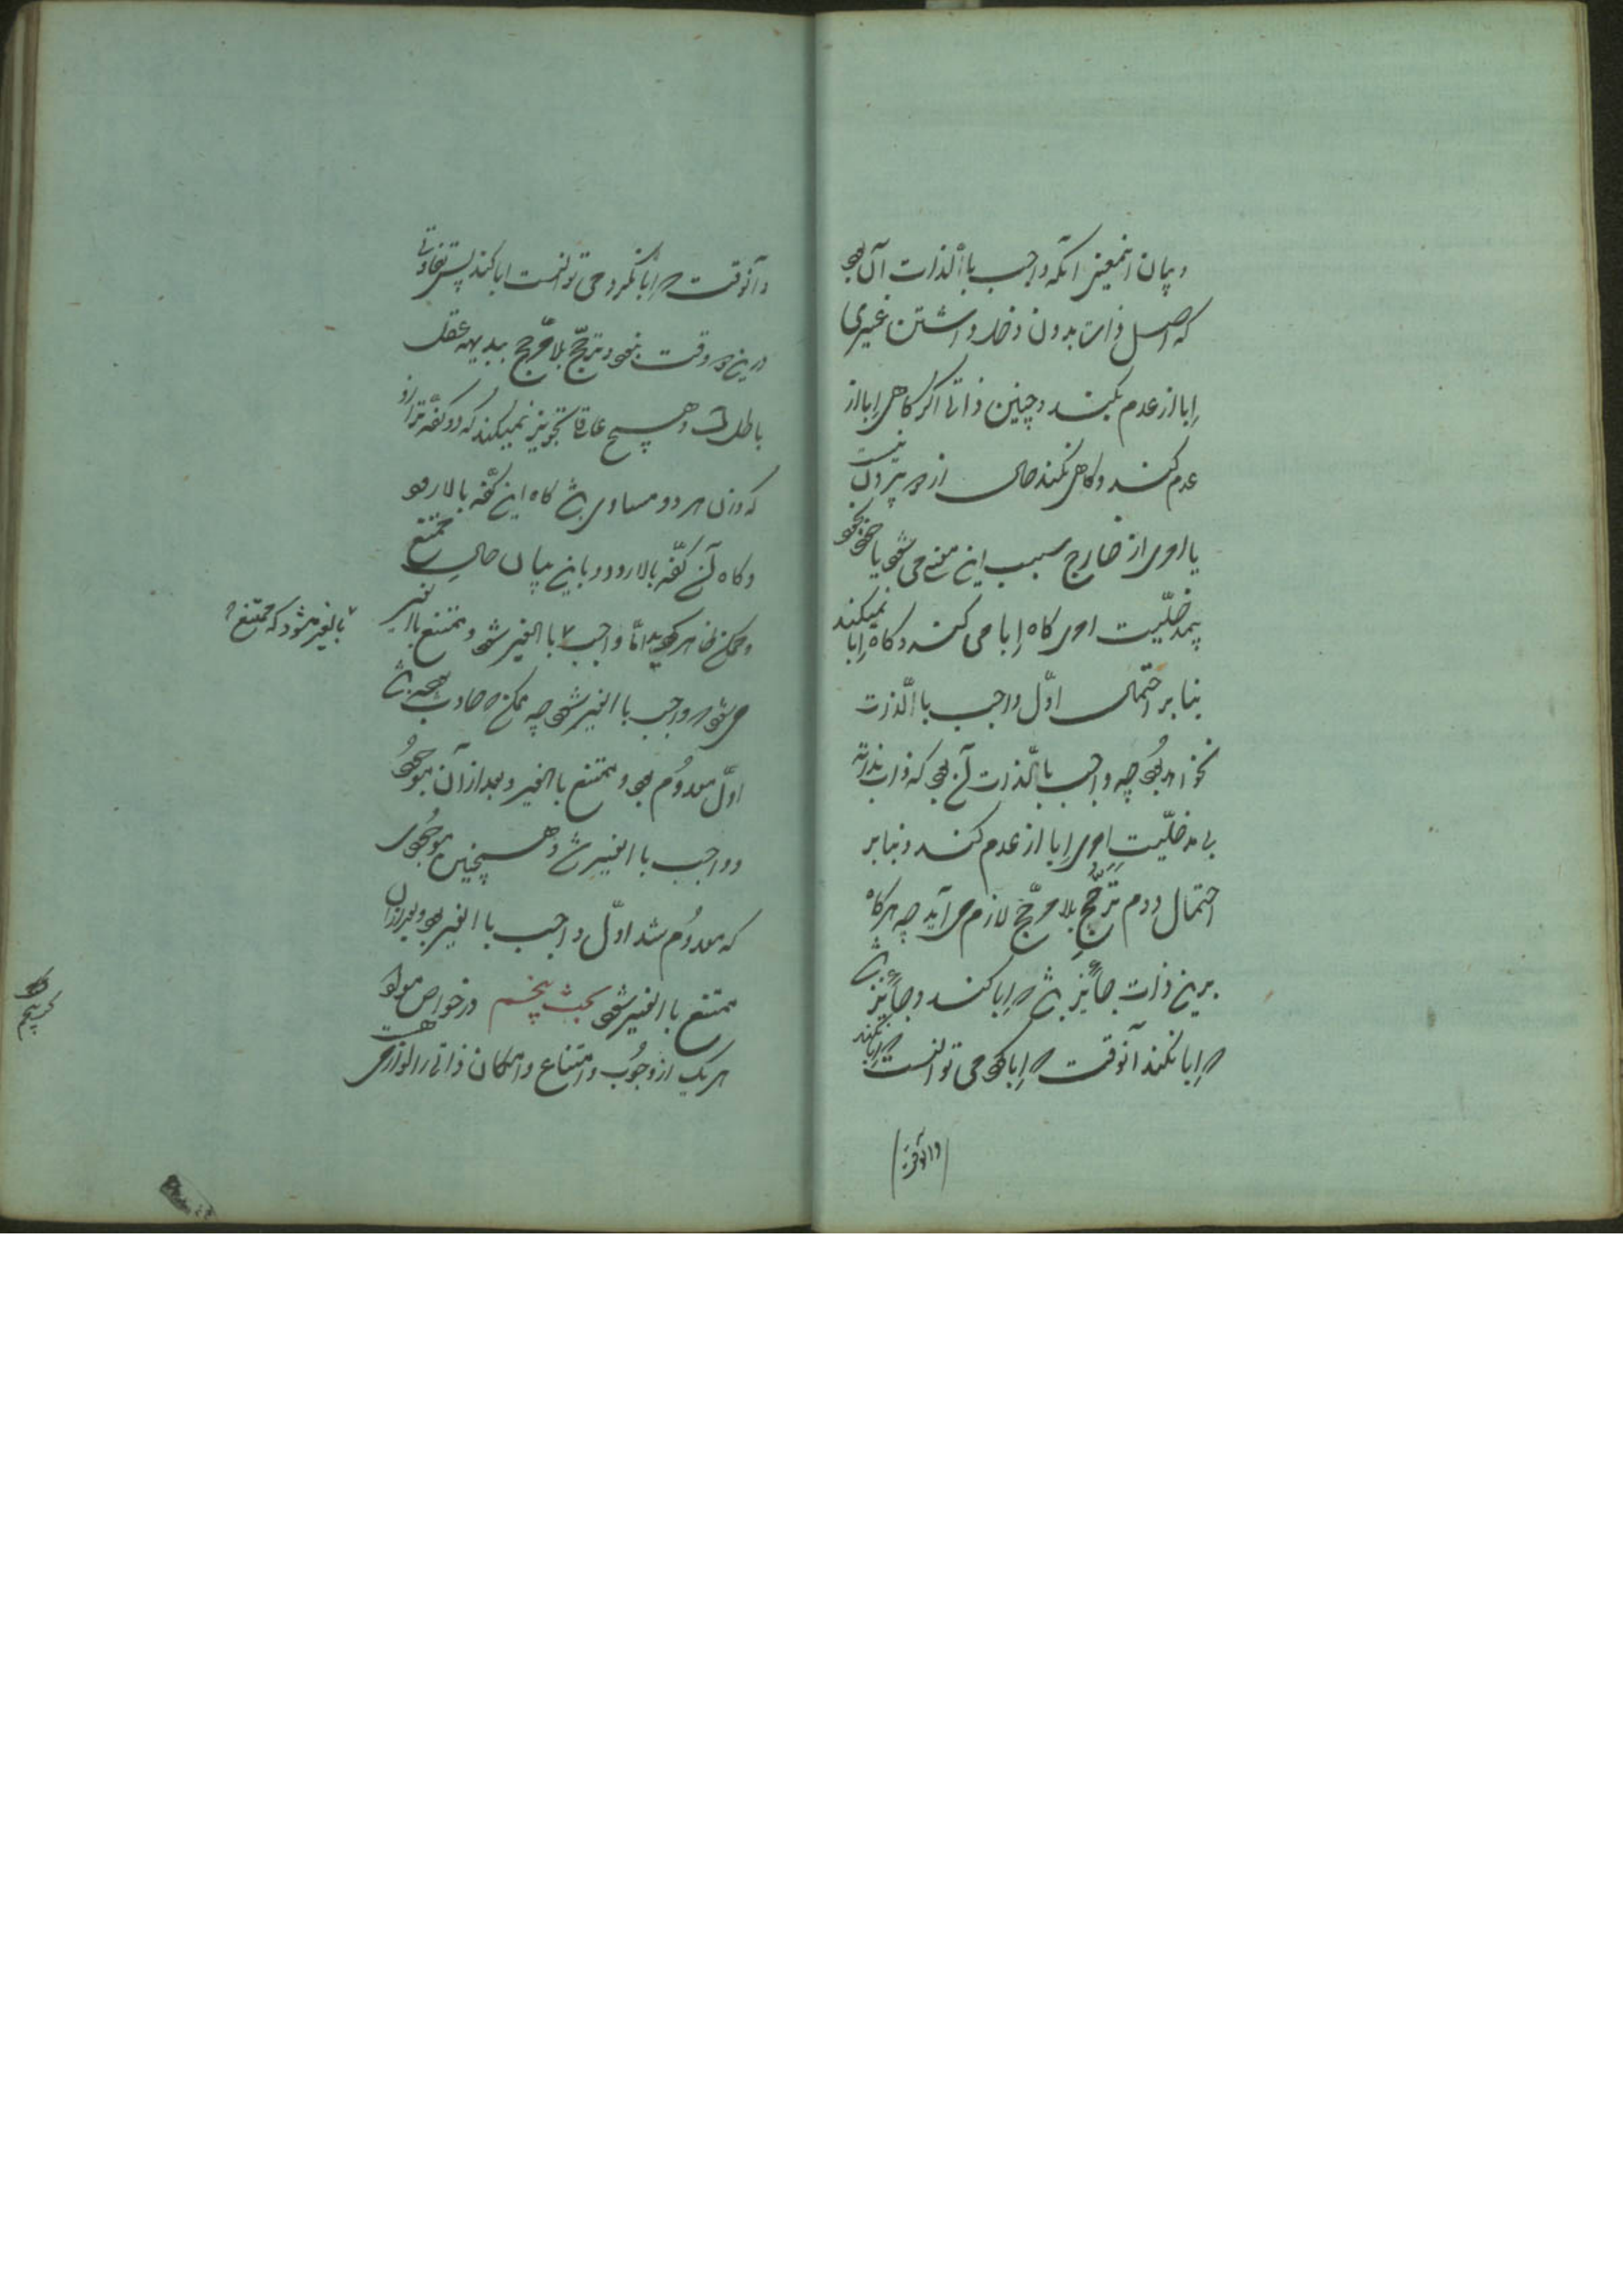 و بیان اینمعنی آنکه واجب باالذات آن بود
که اصل ذات بدون دخل داشتن غیری
إبا از عدم بکند و چنین ذاتی اگر گاهی إبا از
عدم کند و گاهی نکند حال از دو بیرون نیست
یا امری از خارج سبب این معنی می شود یا خود بخود
بیمدخلیّت امری گاه إبا می کند و گاه إبا نمیکند
بنا بر احتمال اوّل واجب باالّذات
نخواهد بود چه واجب باالّذات آن بود که ذات بذاته
بی مدخلیّتِ امری إبا از عدم کند و بنابر
احتمال دوم ترجّحِ بلا مرجّح لازم می آید چه هرگاه
برین ذات جائز باشد که إبا کند و جائز باشد
که إبا نکند آنوقت که إبا کرد می توانست که إبا نکند
وآنوقت
وآنوقت که إبا نکرد می توانست ابا کند پس تفاوتی
درین دو وقت نبود و ترجّح بلا مرجّح ببدیهه عقل
باطل است و هیچ عاقل تجویز نمیکند که دو کفّه ترازو
که وزن هر دو مساوی باشد گاه این کفّه بالا رود
و گاه آن کفّه بالا رود و باین بیان حالِ ممتنع
و ممکن ظاهر گردید امّا واجب باالغیر شود و ممتنع باالغیر
بالغیر میشود که ممتنع
می شود که واجب باالغیر شود چه ممکن که حادث بود باشد
اوّل معدُوم بود و ممتنع باالغیر و بعد از آن موجُود
و واجب باالغیر شد و همچنین موجُودی
که معدُوم شد اوّل واجب باالغیر بود و بعد از آن
ممتنع باالغیر شود بحث پنجم در خواص مواد
هریک از وجُوب و امتناع و امکان ذاتی را لوازمی است
بحث پنجم